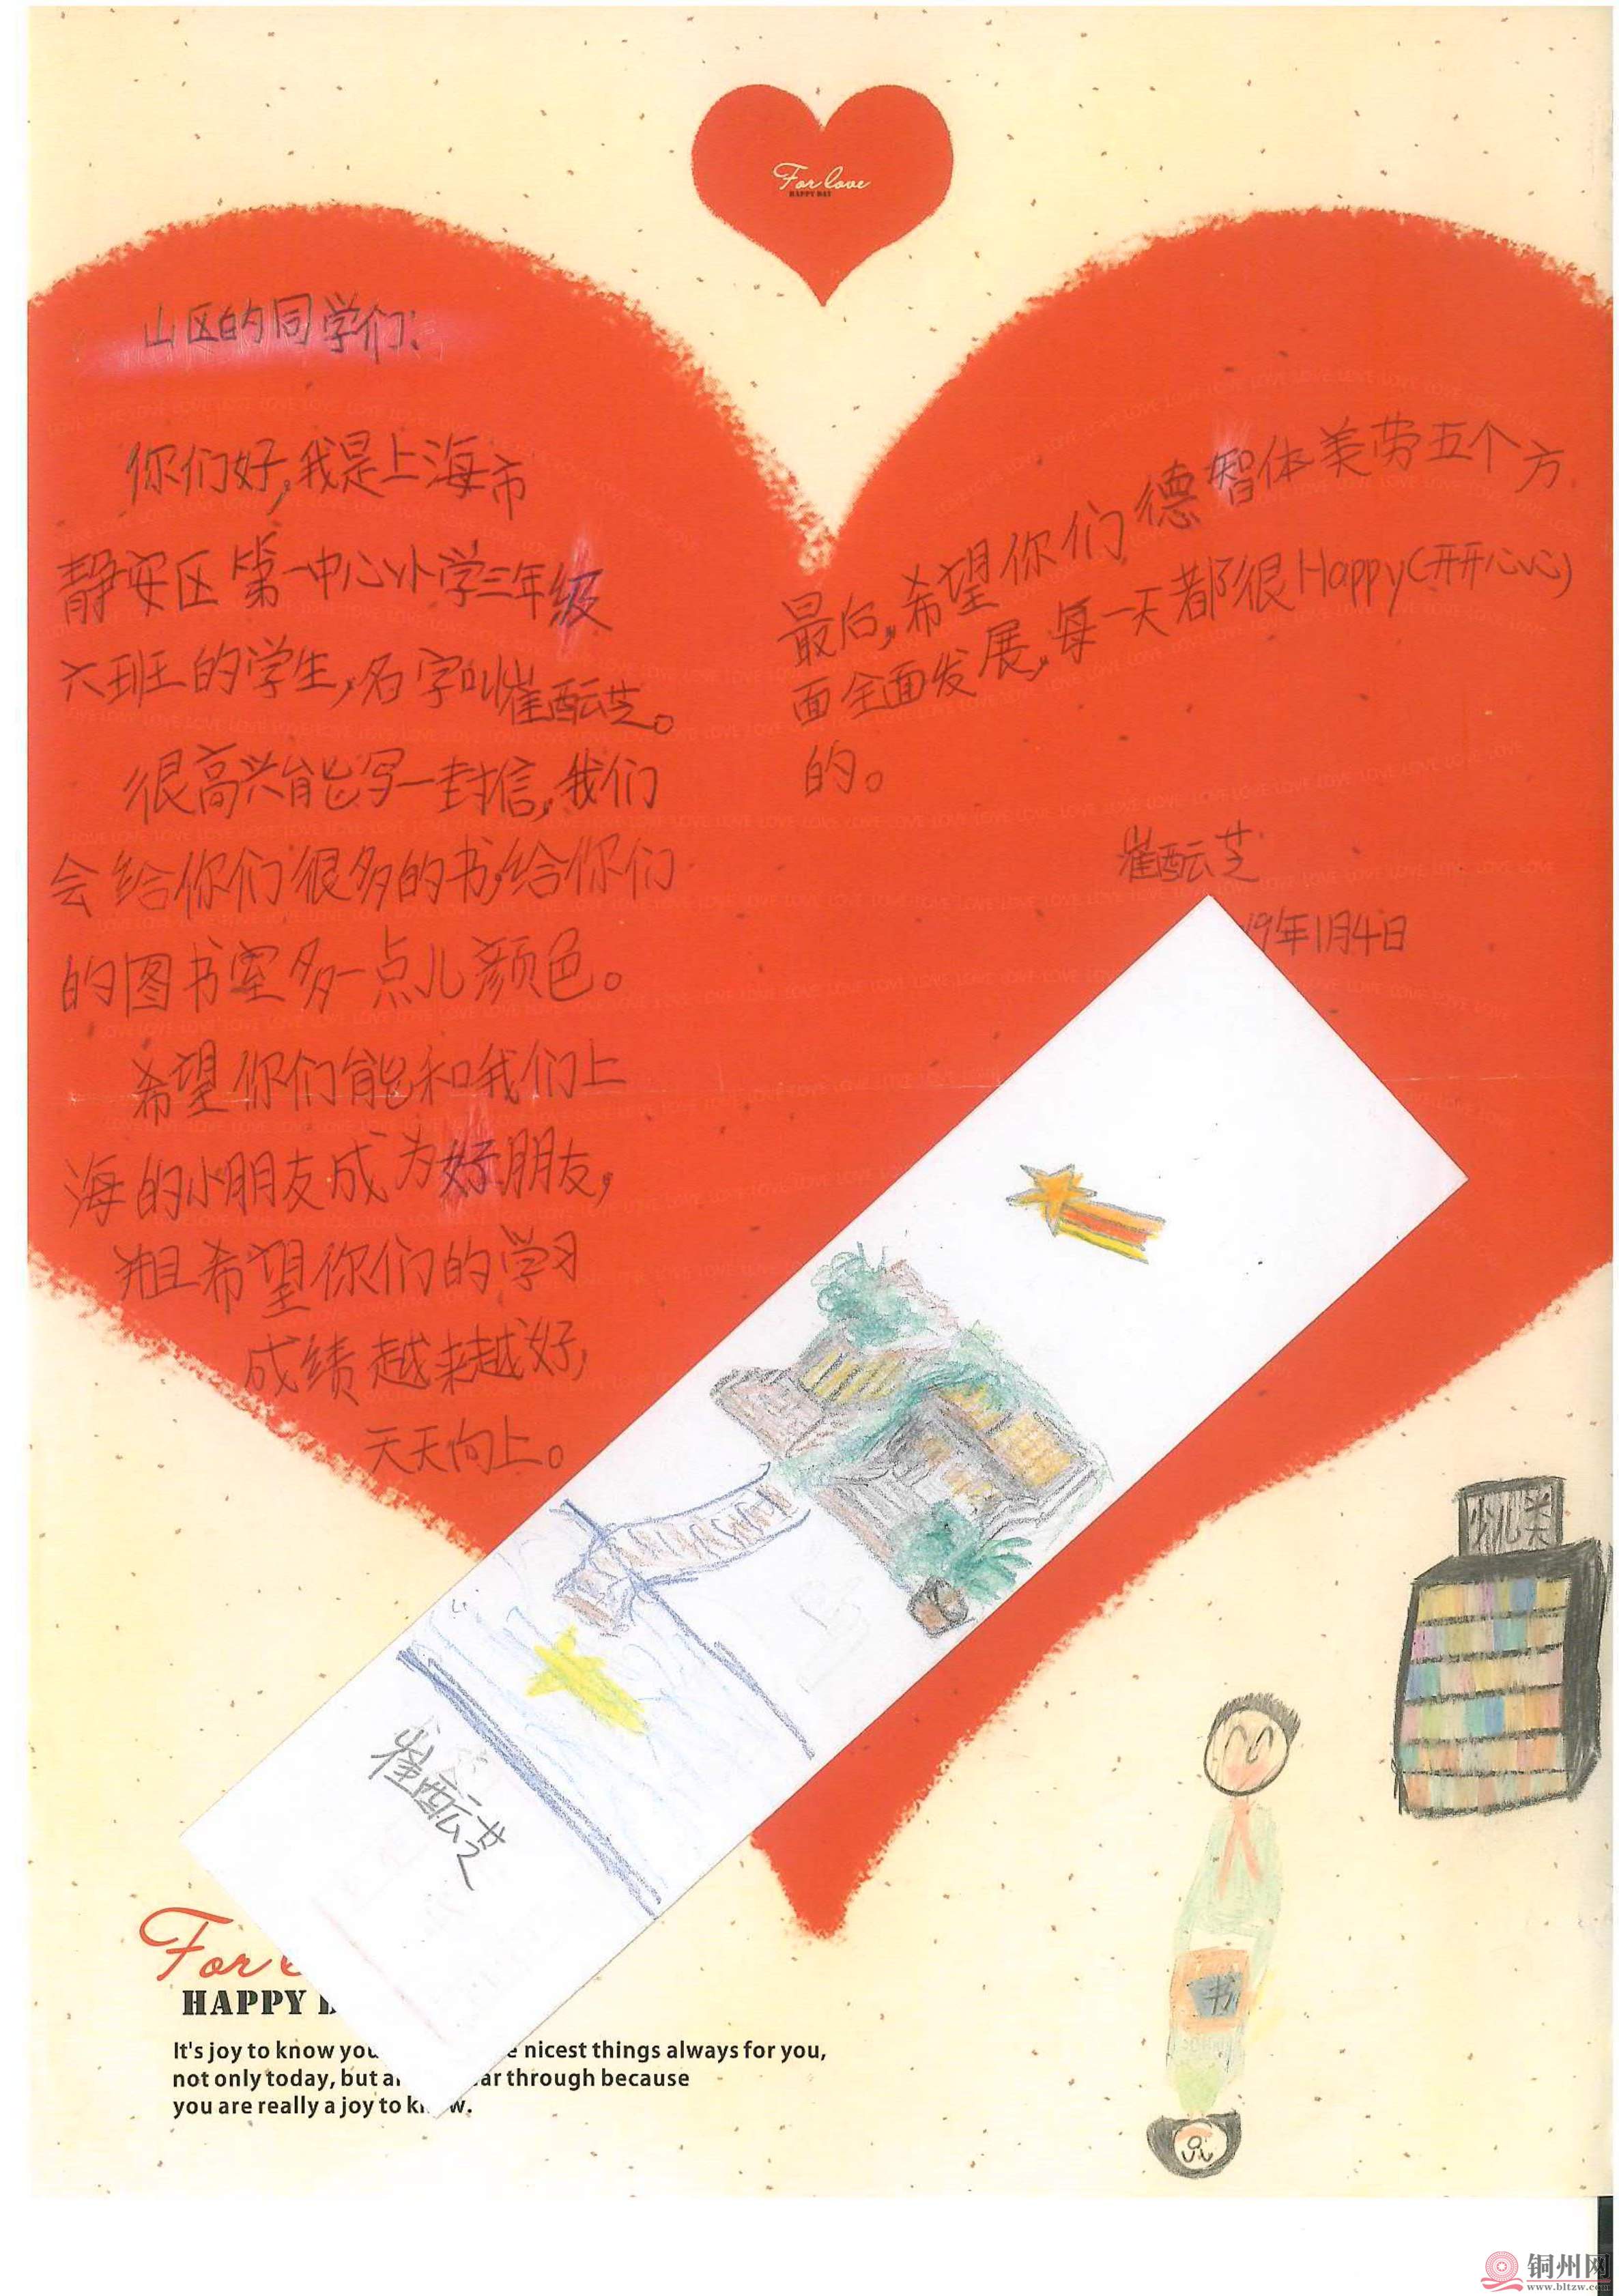 For love
HAPPY DAY
山区的同学们:
你们好,我是上海市
静安区第一中心小学三年级
六班的学生,名字叫崔酝芝。
很高兴能写一封信,我们
会给你们很多的书,给你们
的图书室多一点儿颜色。
希望你们能和我们上
海的小朋友成为好朋友,
并且希望你们的学习
成绩越来越好,
天天向上。
最后,希望你们德智体美劳五个方
面全面发展,每一天都很Happy(开开心心)
的。
崔酝芝
19年1月4日
崔酝芝
少儿类
书
For
HAPPY D
It's joy to know you nicest things always for you,
not only today, but a ar through because
you are really a joy to kn w.
铜州网
www.bltzw.com